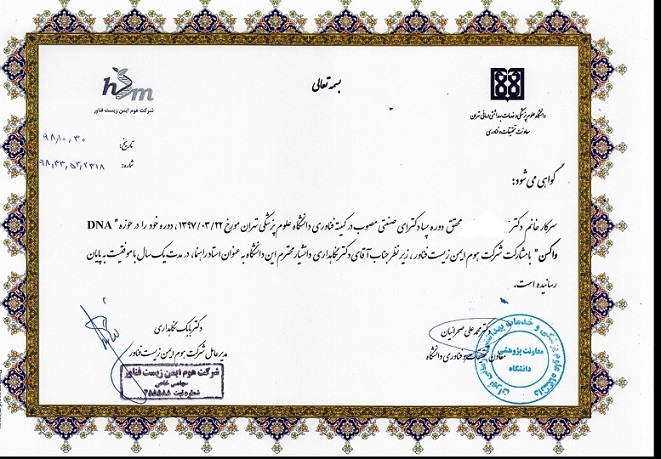 بسمه تعالی
دانشگاه علوم پزشکی و خدمات بهداشتی درمانی تهران
معاونت تحقیقات و فناوری
hsm
شرکت هوم ایمن زیست فناور
تاریخ: ۹۸,۱۰,۳۰
شماره: ۹۸,۴۳,۵۲,۲۳۱۸
گواهی می شود:
سرکار خانم دکتر محقق دوره پسا دکترای صنعتی مصوب در کمیته فناوری دانشگاه علوم پزشکی تهران مورخ ۱۳۹۷/۰۳/۲۲، دوره خود را در حوزه "DNA
واکسن" با مشارکت شرکت هوم ایمن زیست فناور، زیر نظر جناب آقای دکتر نگاهداری دانشیار محترم این دانشگاه به عنوان استاد راهنما، در مدت یک سال با موفقیت به پایان
رسانیده است.
دکتر محمد علی صحرائیان
معاون تحقیقات و فناوری دانشگاه
معاونت پژوهشی
دانشگاه
دکتر بابک نگاهداری
مدیر عامل شرکت هوم ایمن زیست فناور
شرکت هوم ایمن زیست فناور
سهامی خاص